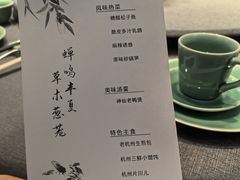 风味热菜
糖醋松子鱼
脆皮多汁乳鸽
麻辣诱惑
原味砂锅笋
美味汤羹
神仙老鸭煲
特色主食
老杭州生煎包
杭州三鲜小馄饨
杭州片川儿
蝉鸣半夏
草木葱茏